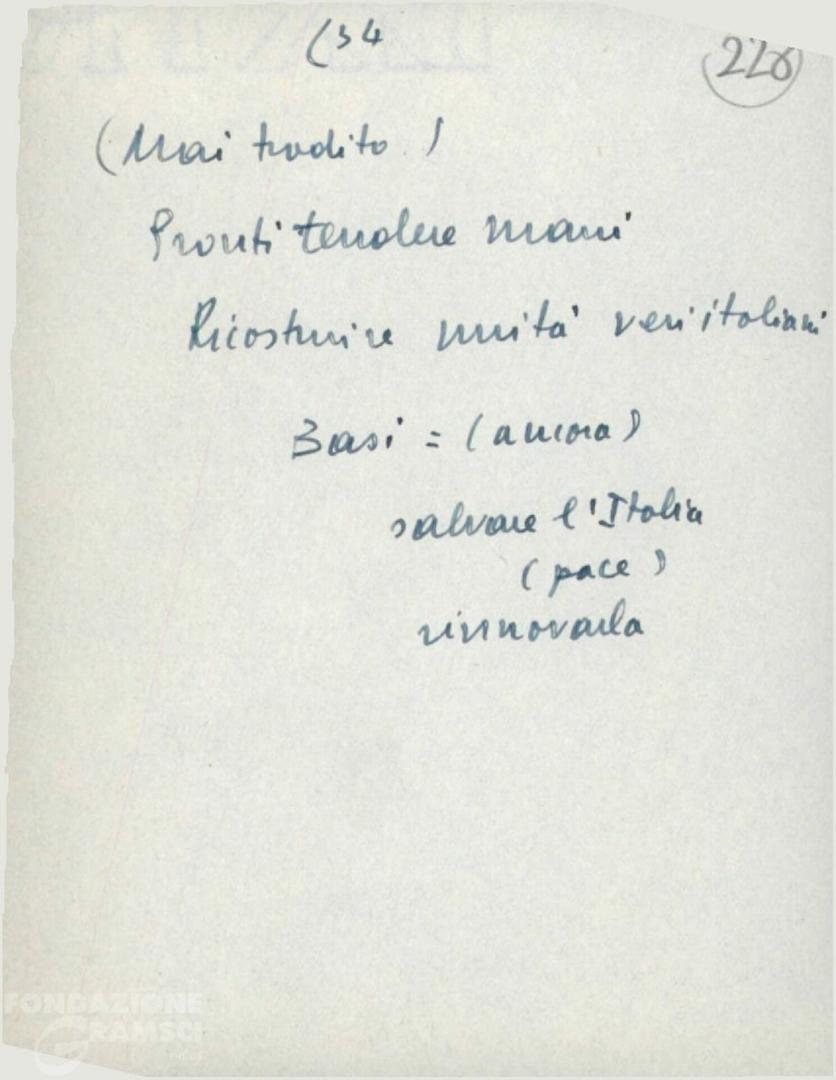 (34
226
(Mai tradito)
Pronti tendere mani
Ricostruire unità veri italiani
Basi = (ancora)
salvare l'Italia
(pace)
rinnovarla
FONDAZIONE
GRAMSCI